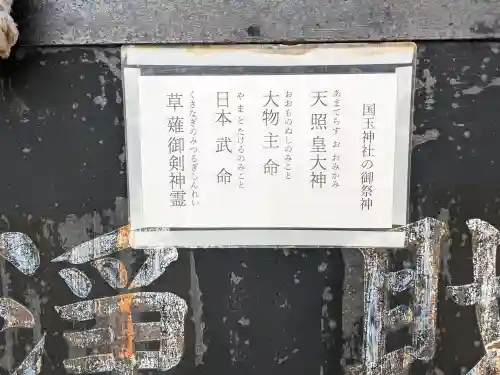 国玉神社の御祭神
あまてらすおおみかみ
天照皇大神
おおものぬしのみこと
大物主命
やまとたけるのみこと
日本武命
くさなぎのみつるぎしんれい
草薙御剣神霊